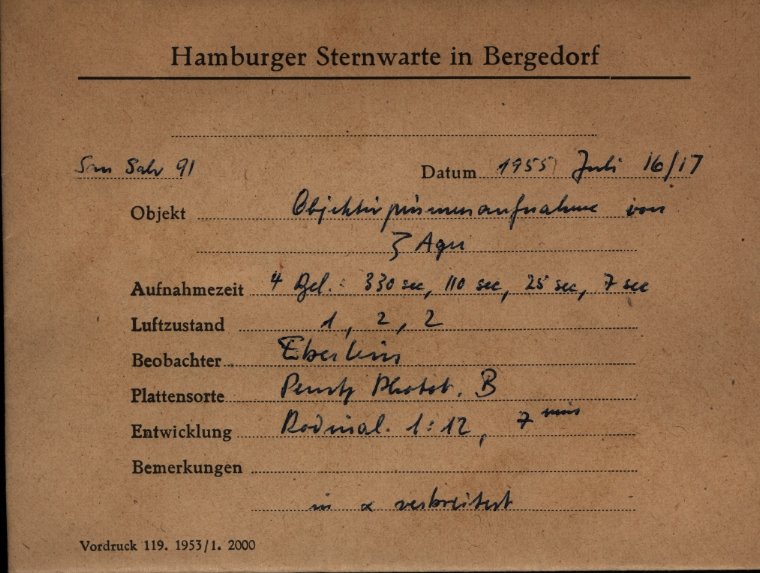 Hamburger Sternwarte in Bergedorf
91 Datum 1955 Juli 16/17
Objekt Objektivprismenaufnahme von
ζ Aqu
Aufnahmezeit 4 Bel.: 330 sec, 110 sec, 25 sec, 7 sec
Luftzustand 1, 2, 2
Beobachter
Plattensorte B
Entwicklung Rodinal 1:12, 7 min
Bemerkungen
in α verbreitert
Vordruck 119. 1953/1. 2000